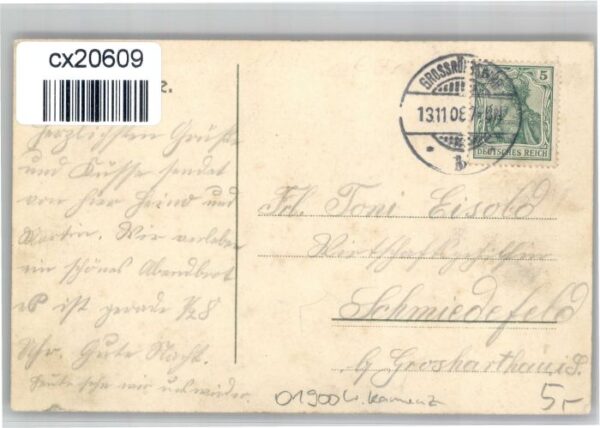 cx20609
z.
GROSSRÖHRSDORF
13.11.06 7-8N
b.
5
DEUTSCHES REICH
Herzlichsten Grüße
und Küsse sendet
von hier und
Martin. Wir verleben
ein schönes Abendbrot
es ist gerade 1/2 8
Uhr. Gute Nacht.
Heute sehn wir uns wieder.
Frl. Toni Eisold
Wirtschaftsgehilfin
Schmiedefeld
b/ Großharthau i. S.
01900 b. Kamenz
5,-